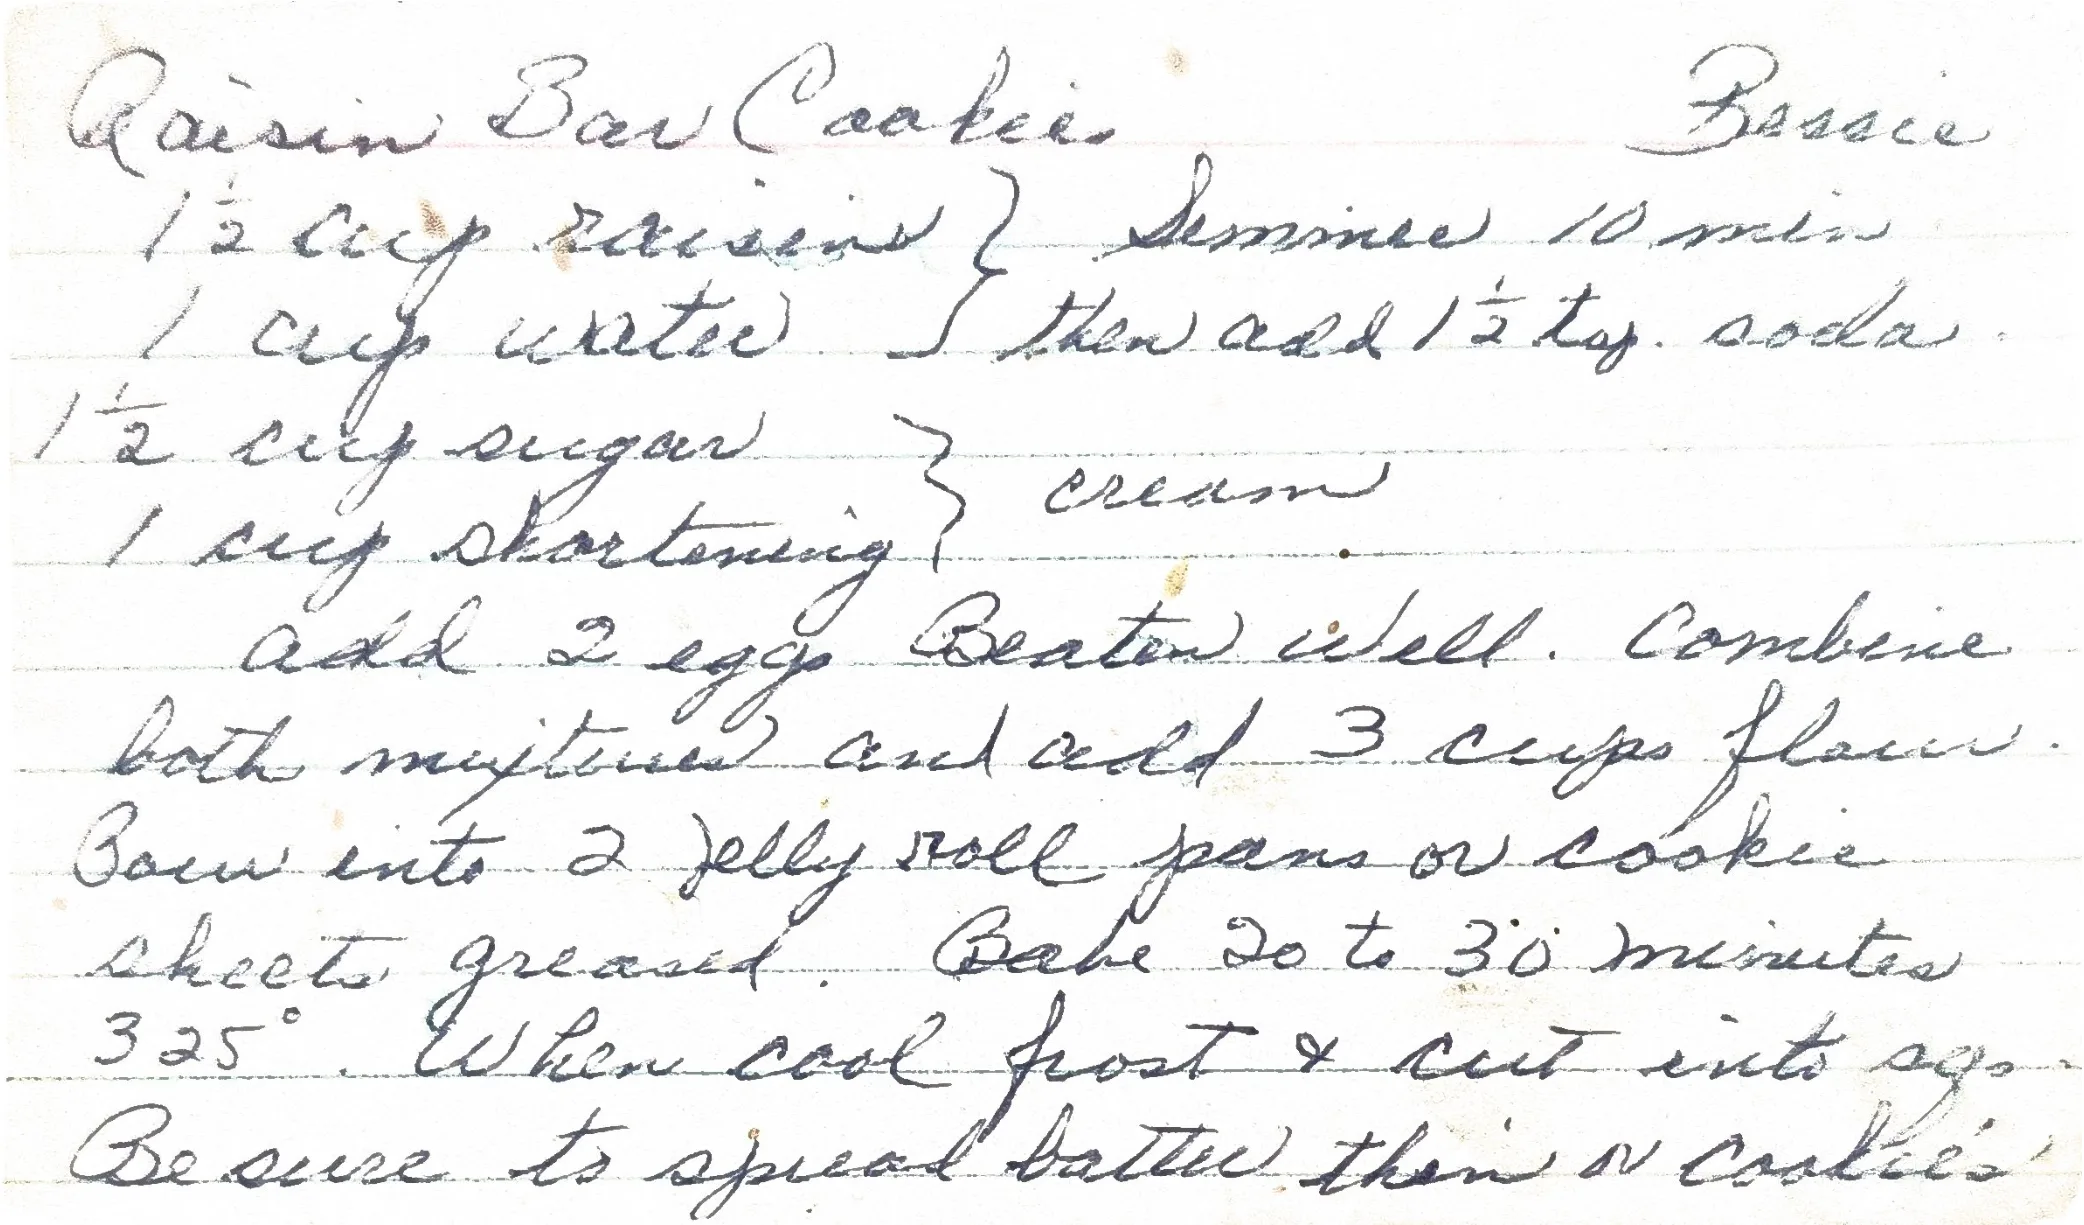 Raisin Bar Cookies Bessie
1 1/2 cup raisins } Simmer 10 min
1 cup water } then add 1 1/2 tsp. soda.
1 1/2 cup sugar } cream
1 cup shortening
add 2 eggs Beaten well. Combine
both mixtures and add 3 cups flour.
Pour into 2 jelly roll pans or cookie
sheets greased. Bake 20 to 30 minutes
325°. When cool frost & cut into sqs.
Be sure to spread batter thin or cookie's